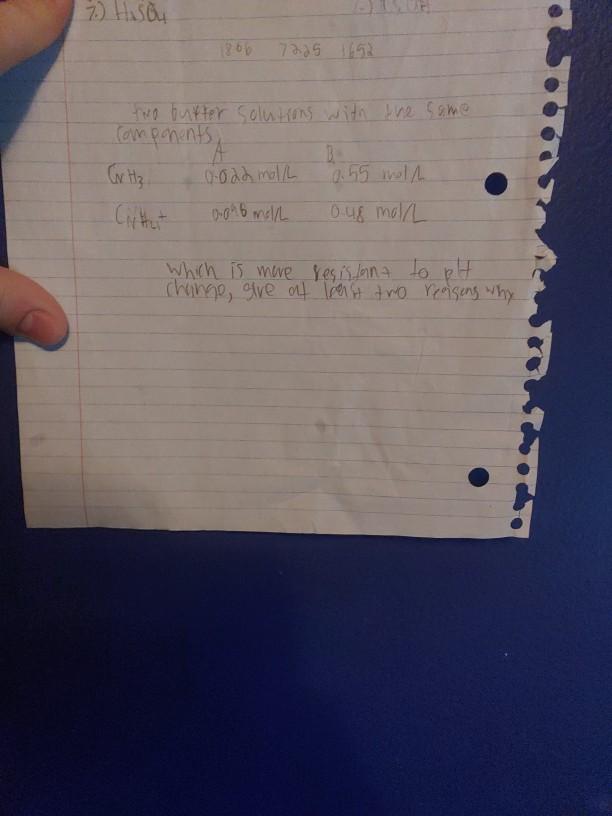 7.) H2SO4
1866 7225 1652
two buffer solutions with the same
components,
A B
CNH3 0.022 mol/L 0.55 mol/L
CNH4+ 0.096 mol/L 0.48 mol/L
which is more resistant to pH
change, give at least two reasons why